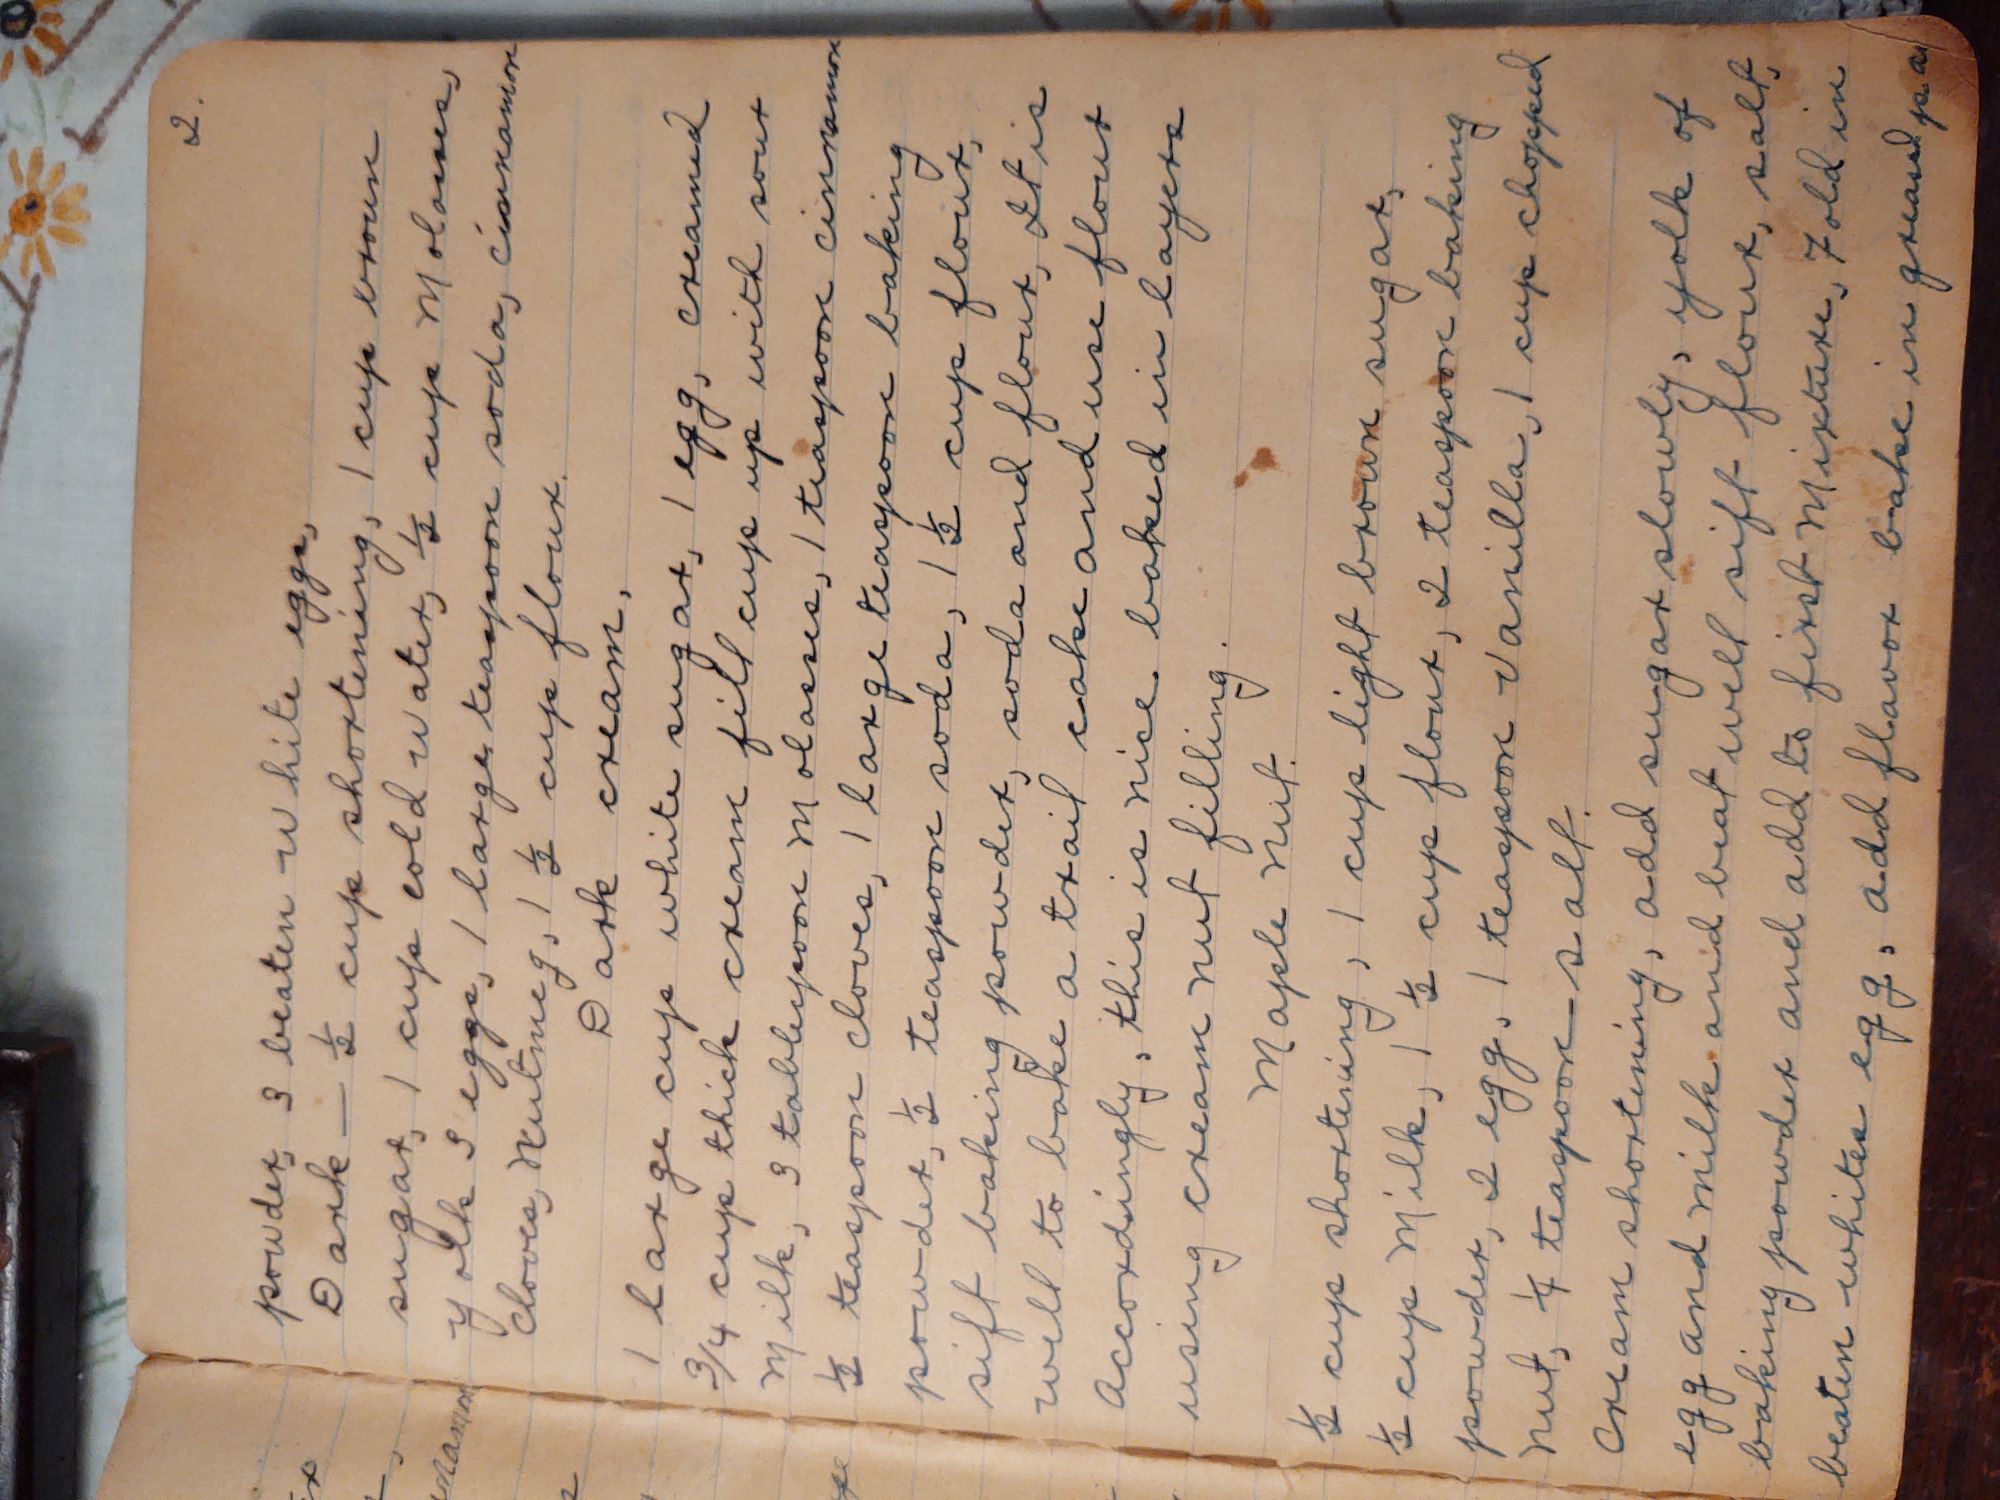 2.
powder, 3 beaten white eggs,
Dark — ½ cup shortening, 1 cup brown
sugar, 1 cup cold water, ½ cup Molasses,
yolk 3 eggs, 1 large teaspoon soda, cinnamon
Cloves, Nutmeg, 1 ½ cup flour.
Dark cream,
1 large cup white sugar, 1 egg, creamed
3/4 cup thick cream fill cup up with sour
Milk, 3 tablespoon Molasses, 1 teaspoon cinnamon
½ teaspoon cloves, 1 large teaspoon baking
powder, ½ teaspoon soda, 1 ½ cup flour,
sift baking powder, soda and flour, It is
well to bake a trail cake and use flour
accordingly, this is nice baked in layers
using cream nut filling.
Maple Nut.
½ cup shortening, 1 cup light brown sugar,
½ cup Milk, 1 ½ cup flour, 2 teaspoon baking
powder, 2 egg, 1 teaspoon Vanilla, 1 cup chopped
Nut, ¼ teaspoon salt.
Cream shortening, add sugar slowly, yolk of
egg and milk and beat well sift flour, salt,
baking powder and add to first Mixture, Fold in
beaten whites egg, add flavor bake in greased pa